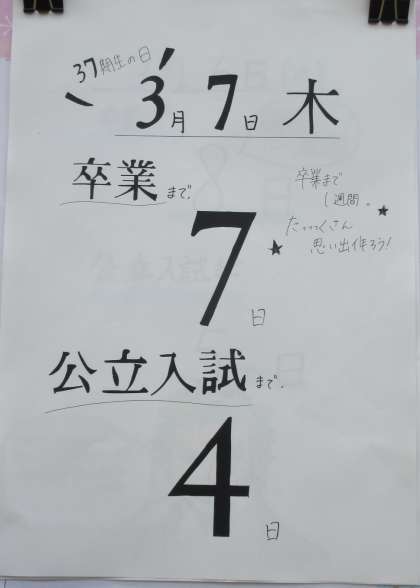 37期生の日
3月7日 木
卒業まで.
卒業まで
1週間。
たっっくさん
思い出作ろう!
7日
公立入試まで.
4日